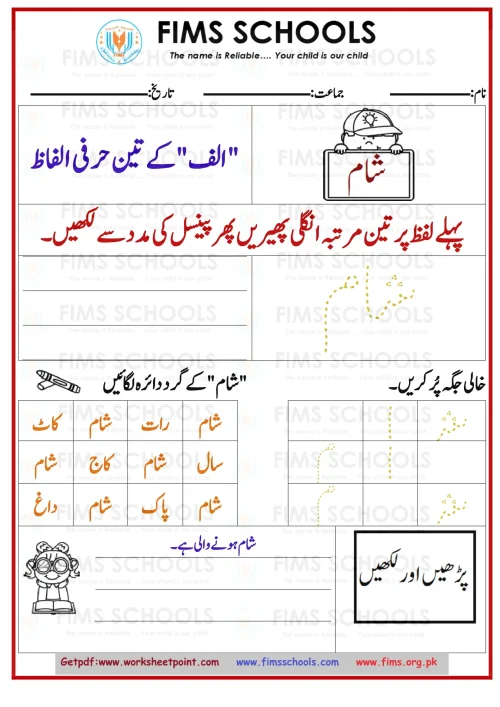 FIMS SCHOOLS
The name is Reliable.... Your child is our child
نام: جماعت: تاریخ:
شام
"الف" کے تین حرفی الفاظ
پہلے لفظ پر تین مرتبہ انگلی پھیریں پھر پینسل کی مدد سے لکھیں۔
شام
خالی جگہ پُر کریں۔
"شام" کے گرد دائرہ لگائیں
شام رات شام کاٹ
سال شام کاج شام
شام پاک شام داغ
پڑھیں اور لکھیں
شام ہونے والی ہے۔
Getpdf:www.worksheetpoint.com www.fimsschools.com www.fims.org.pk